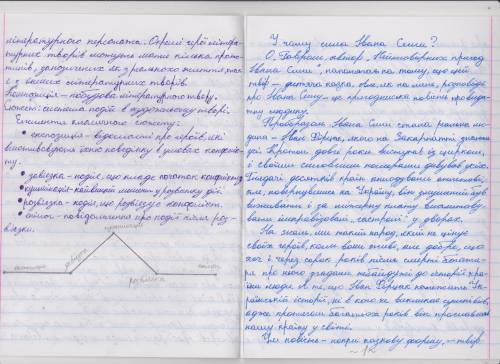 літературного персонажа. Окремі герої літера-
турних творів можуть мати кілька прото-
типів, запозичених як з реального життя так
і з інших літературних творів.
Композиція - побудова літературного твору.
Сюжет: система подій в художньому творі.
Елементи класичного сюжету:
• експозиція - відомості про героїв, які
їхню поведінку в умовах конфлік-
ту.
• зав'язка - подія, що кладе початок конфлікту
• кульмінація - найвищий момент у розвитку дії
• розв'язка - подія, що розв'язує конфлікт.
• епілог - повідомлення про події після роз-
в'язки.
кульмінація
зав'язка
експозиція
розв'язка
епілог
У чому сила Івана Сили?
О. Гаврош, автор „Неймовірних пригод
Івана Сили", наполягає на тому, що цей
твір - дитяча казка. Але, як на мене, розповідь
про Івана Силу - це пригодницька повість, правди-
ва
Прообразом Івана Сили стала реальна лю-
дина - Іван Фірцак, якого на Закарпатті знають як
Кротон довгі роки виступав із цирком
і своїми силовими номерами дивував усіх.
Глядачі десятків країн аплодували атлетові,
але, повернувшись на Україну, він змушений був
виживати і за мізерну плату влаштову-
вати „гастролі" у дворах.
На жаль, ми такий народ, який не цінує
своїх героїв, коли вони живі, але добре, що
хоч і через сорок років після смерті богати-
ря про нього згадали небайдужі до історії краї-
ни люди. А те, що Іван Фірцак належить Ук-
раїнській історії, ні в кого не викликає сумнівів,
адже протягом багатьох років він прославляв
нашу країну у світі.
Ця повість - попри казкову форму, - твір